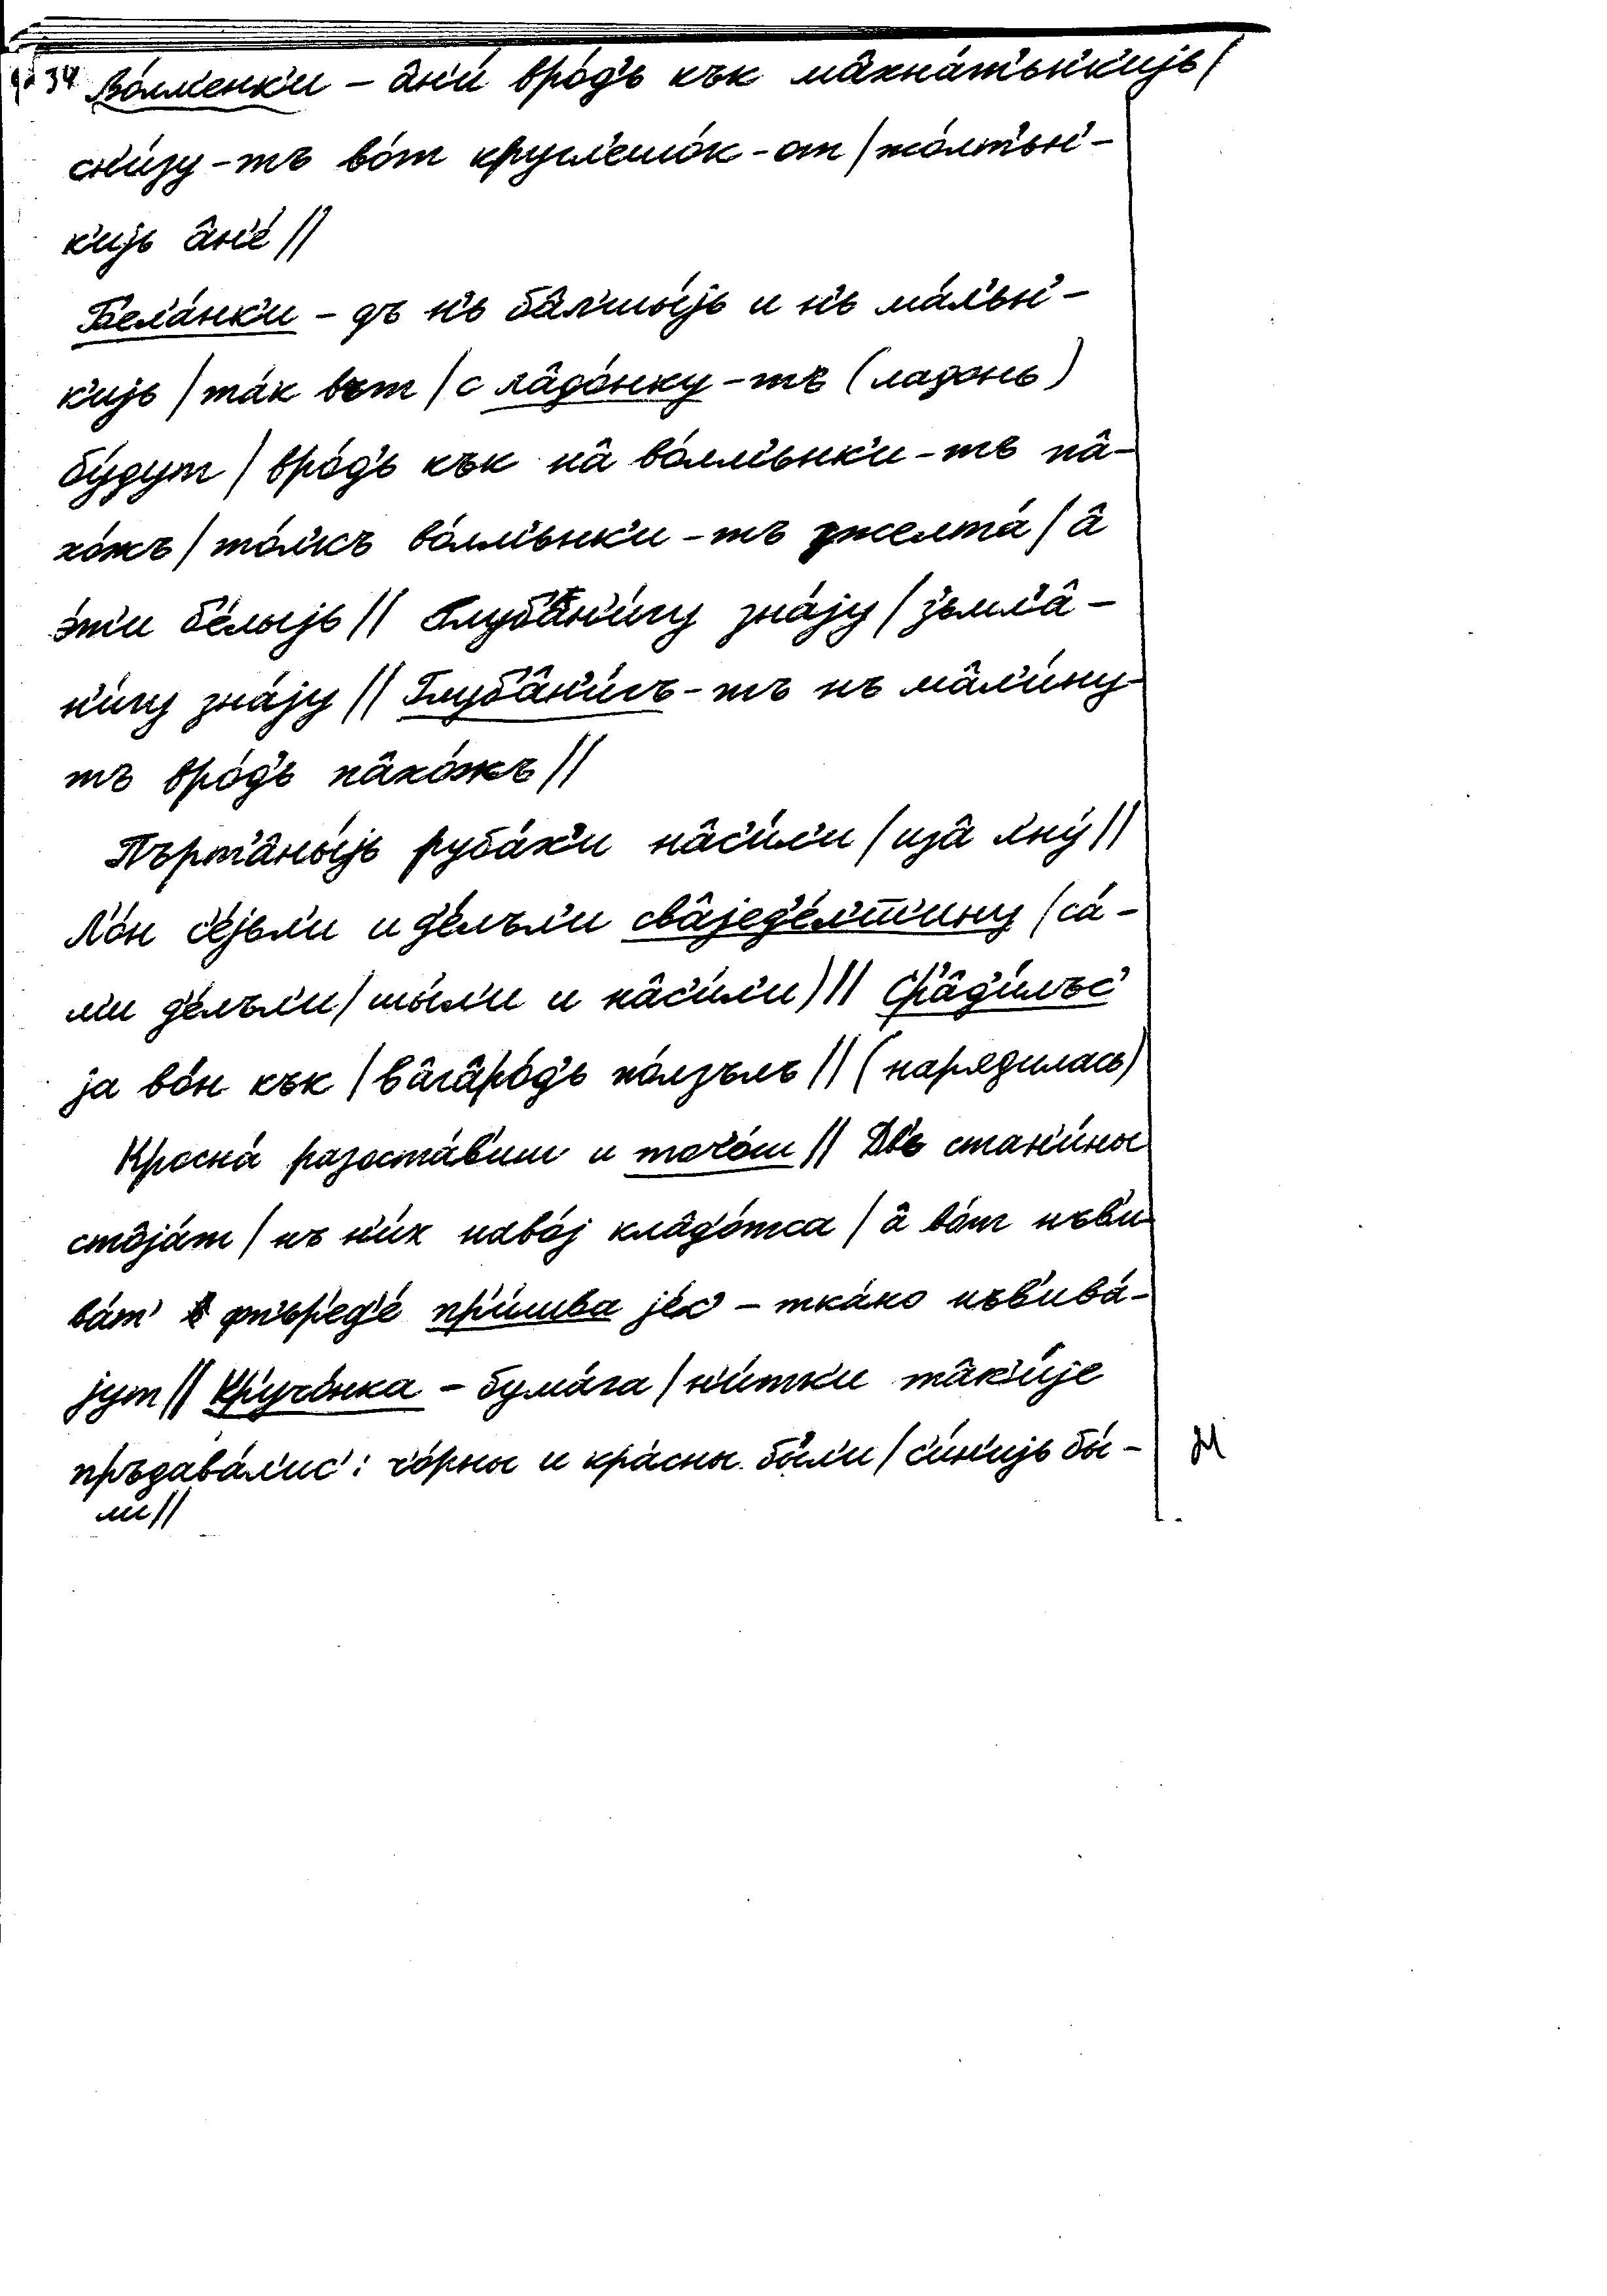 34 Во́лм'енк'и – а̂н'и́ вро́д'ь кък ма̂хна́т'ьн'к'иjь /
сн'и́зу-тъ во́т кругл'ешо́к-от / жо́лт'ьн'-
к'иjь а̂н'е́ //
Б'ел'а́нк'и – дъ н'ь ба̂л'шы́jь и н'ь ма́л'ьн'-
к'иjь / та́к вът / с ла̂до́нку-тъ (ладонь)
бу́дут / вро́д'ь кък на̂ во́лм'ьнк'и-тъ па̂-
хо́жъ / то́л'къ во́лм'ьнк'и-тъ желта́ / а̂
э́т'и б'е́лыjь // Глуб'а̂н'и́гу зна́jу / з'ьмл'а̂-
н'и́гу зна́jу // Глуб'а̂н'и́гъ-тъ нъ ма̂л'и́ну-
тъ вро́д'ь па̂хо́жъ //
Пърт'а̂ны́jь руба́х'и на̂с'и́л'и / иза̂ л'ну́ //
Л'о́н с'е́jьл'и и д'е́лъл'и сва̂jед'е́л'т'ину / са́-
ми д'е́лъл'и / шы́л'и и на̂с'и́л'и) // Ср'а̂д'и́лъс'
jа во́н кък / ва̂га̂ро́д'ь по́лзълъ // (нарядилась)
Кросна́ разоста́в'иш и точо́ш // Дв'ь стан'и́ны
ста̂jа́т / нъ н'и́х наво́j кла̂д'о́тса / а̂ во́т нъв'и-
ва́т' фп'ьр'ед'е́ пр'и́шва jе́с' – тка́но нъв'ива́-
jут // Кр'учо́нка – бума́га / н'и́тк'и та̂к'и́jе
пръдава́л'ис': чо́рны и кра́сны бы́л'и / с'и́н'иjь бы́-
л'и //